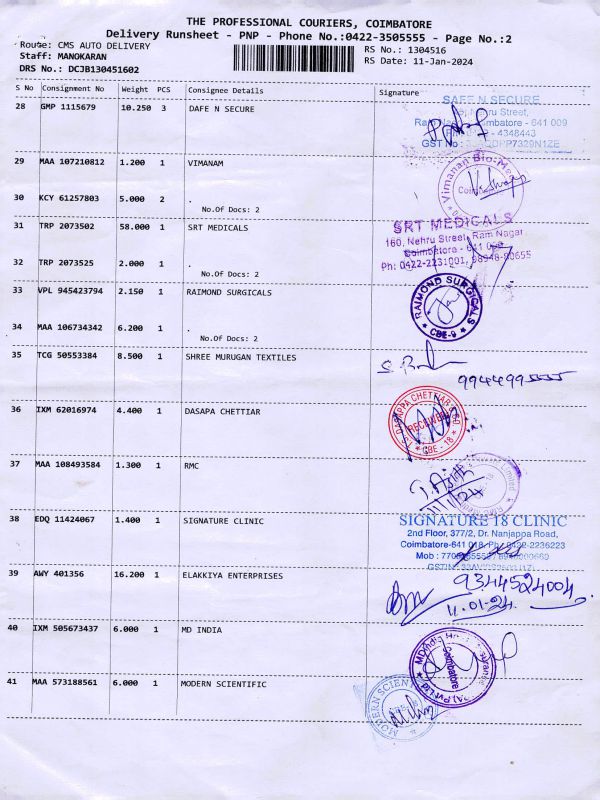 THE PROFESSIONAL COURIERS, COIMBATORE
Delivery Runsheet - PNP - Phone No.:0422-3505555 - Page No.:2
Route: CMS AUTO DELIVERY
RS No.: 1304516
Staff: MANOKARAN
RS Date: 11-Jan-2024
DRS No.: DCJB130451602
S No Consignment No Weight PCS Consignee Details Signature
28 GMP 1115679 10.250 3 DAFE N SECURE
SAFE N SECURE
Nehru Street,
Coimbatore - 641 009
4348443
GST No
29 MAA 107210812 1.200 1 VIMANAM
Vimanam Bio-Me
30 KCY 61257803 5.000 2 .
No.Of Docs: 2
31 TRP 2073502 58.000 1 SRT MEDICALS
SRT MEDICALS
160, Nehru Street, Ram Nagar
Coimbatore - 641 009
Ph: 0422-2231001, 98948-80655
32 TRP 2073525 2.000 1 .
No.Of Docs: 2
33 VPL 945423794 2.150 1 RAIMOND SURGICALS
RAIMOND SURGICALS
* CBE-9 *
34 MAA 106734342 6.200 1 .
No.Of Docs: 2
35 TCG 50553384 8.500 1 SHREE MURUGAN TEXTILES
36 IXM 62016974 4.400 1 DASAPA CHETTIAR
DASAPPA CHETTIAR
RECEIVED
* CBE - 18 *
37 MAA 108493584 1.300 1 RMC
11/1/24
38 EDQ 11424067 1.400 1 SIGNATURE CLINIC
SIGNATURE 18 CLINIC
2nd Floor, 377/2, Dr. Nanjappa Road,
Coimbatore-641 018, Ph: 0422-2236223
Mob :
39 AWY 401356 16.200 1 ELAKKIYA ENTERPRISES
9344524004
11.01.24
40 IXM 505673437 6.000 1 MD INDIA
Coimbatore
41 MAA 573188561 6.000 1 MODERN SCIENTIFIC
MODERN SCIENTI